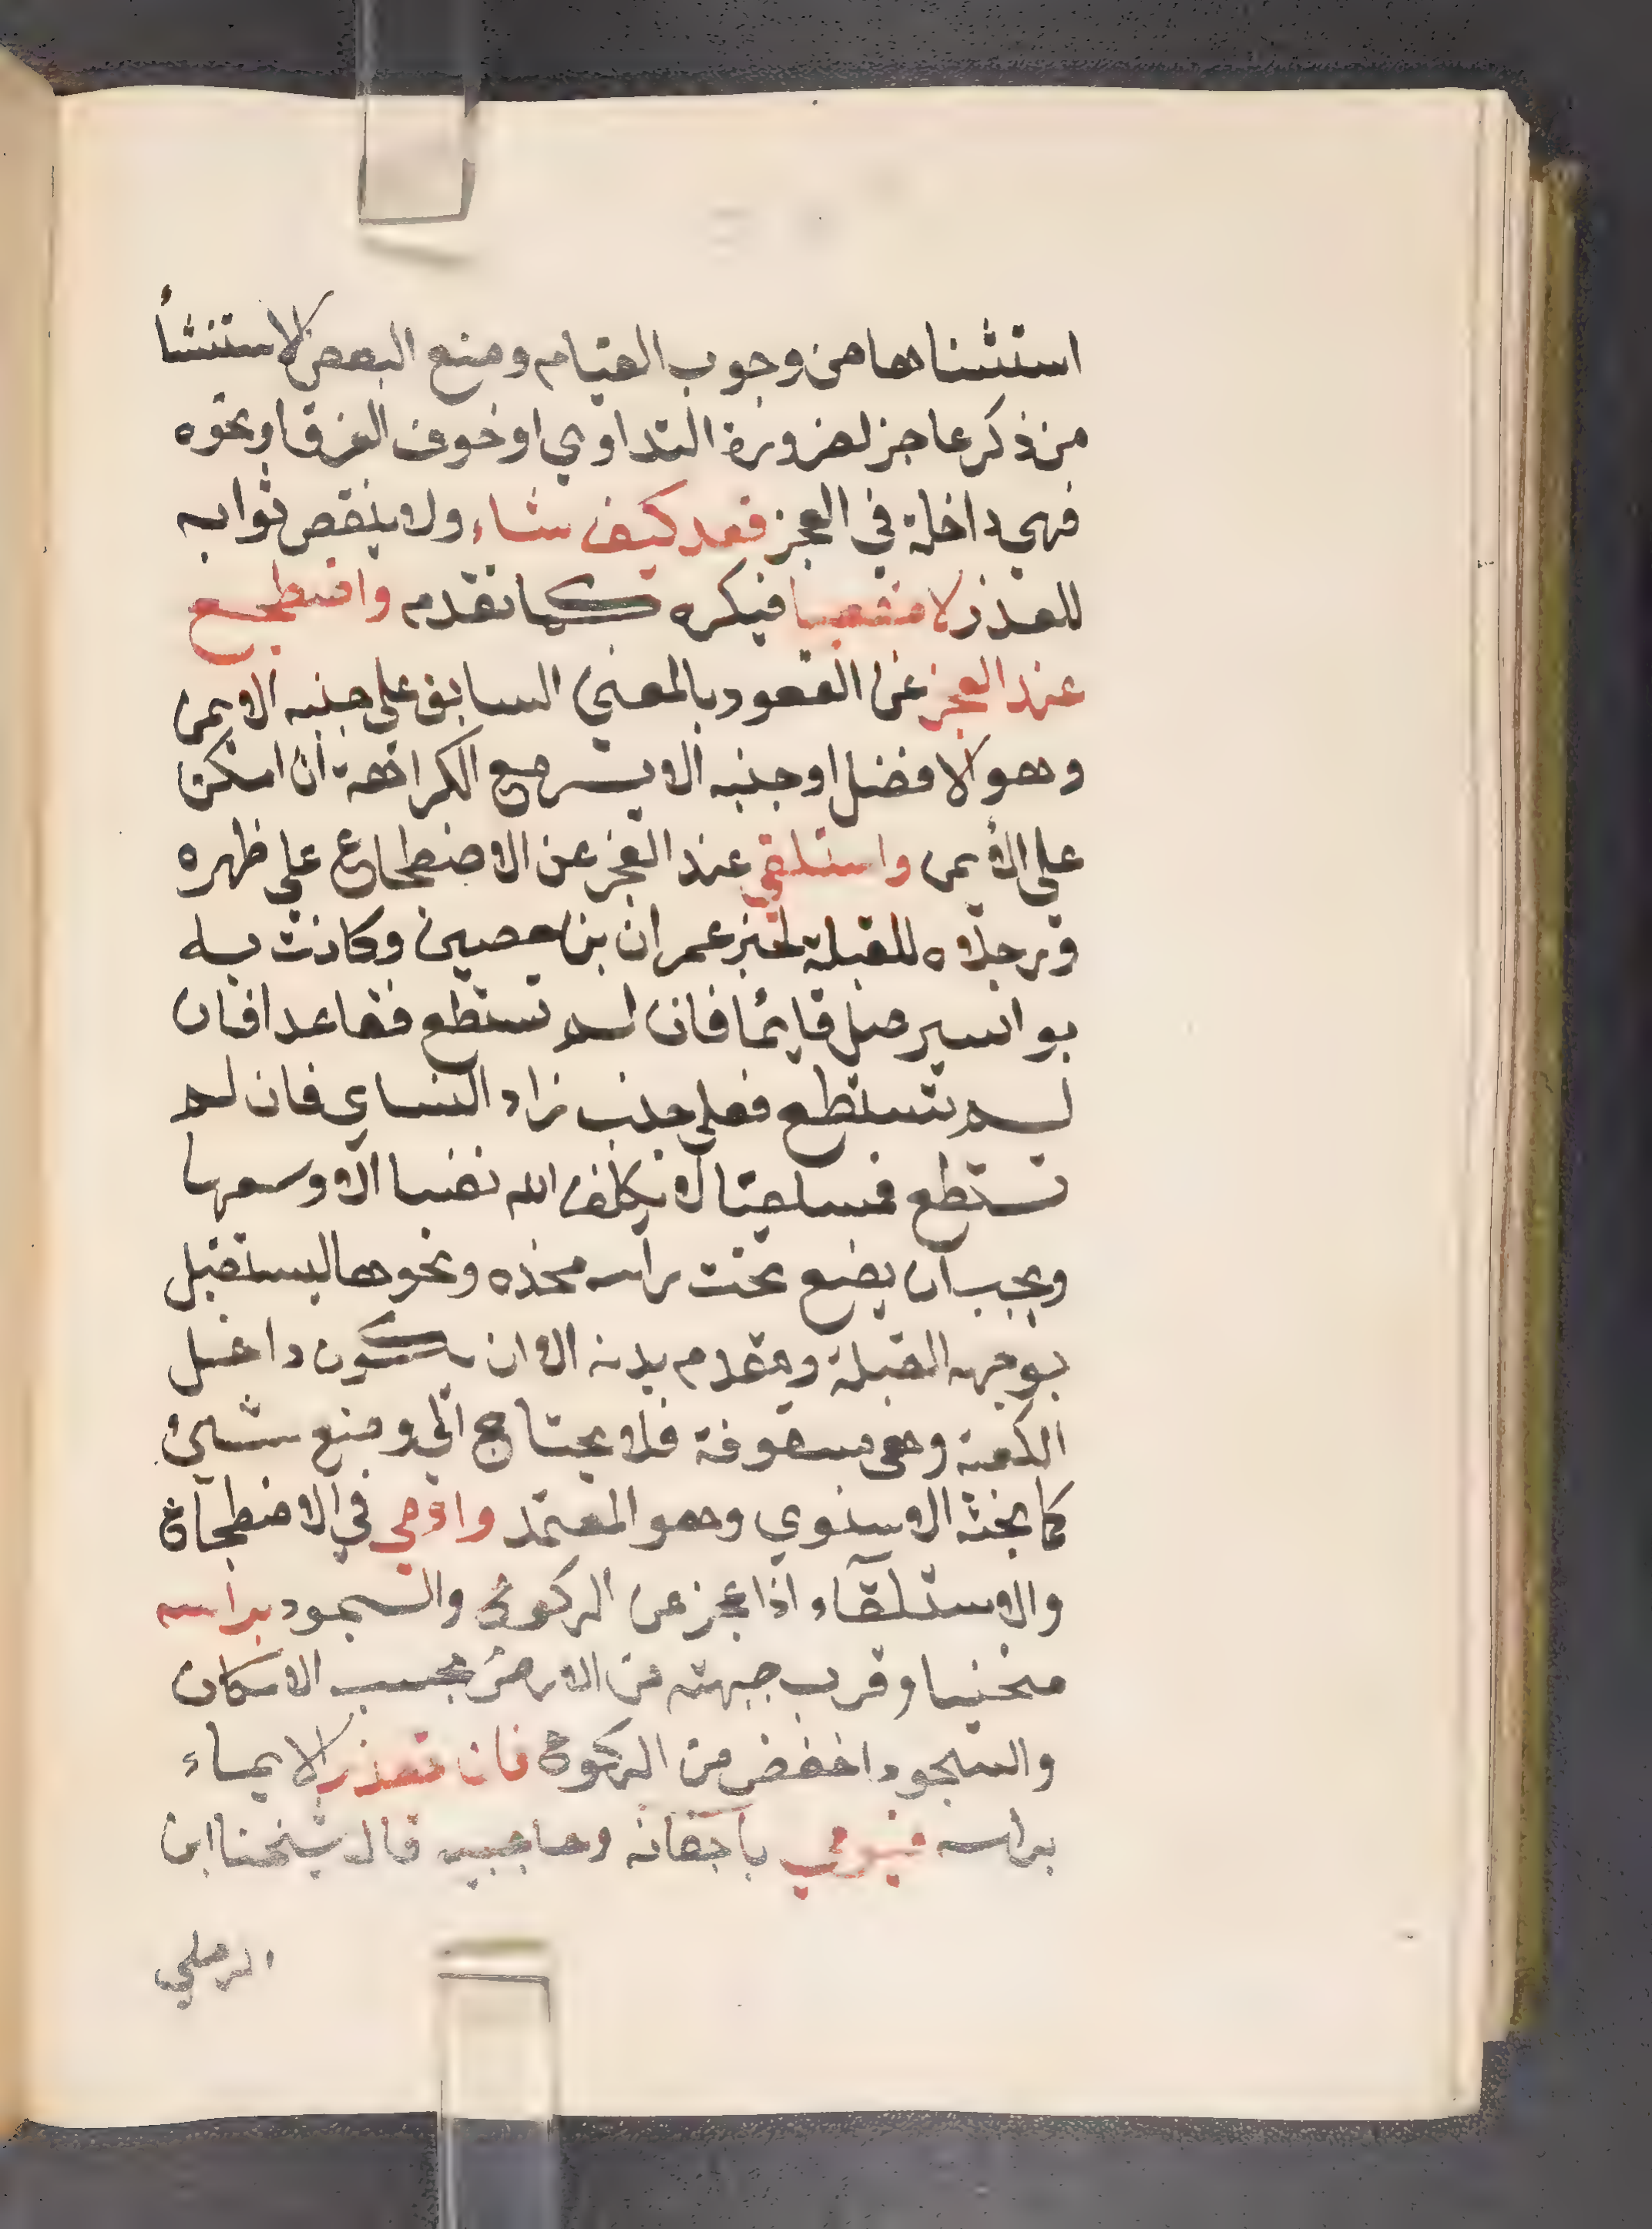 استثناها من وجوب القيام ومنع البعض الاستثنأ
من ذكر عاجز لضرورة التداوي او خوف الغرق او نحوه
فهي داخلة في العجز قعد كيف شاء ولا ينقص ثوابه
للعذر لا مقعيا فيكره كما تقدم واضطجع
عند العجز عن القعود بالمعني السابق علي جنبه الايمن
وهو الافضل او جنبه الايسر مع الكراهة ان امكن
علي الايمن واستلقي عند العجز عن الاضطجاع علي ظهره
ورجلاه للقبلة لخبر عمران بن حصين وكانت به
بواسير صل قايما فان لم تستطع فقاعدا فان
لم تستطع فعلي جنب زاد النساي فان لم
تستطع فمستلقيا لا يكلف الله نفسا الا وسعها
ويجب ان يضع تحت راسه مخذه ونحوها ليستقبل
بوجهه القبلة ومقدم بدنه الا ان يكون داخل
الكعبة وهي مسقوفة فلا يحتاج الي وضع شيئ
كما بحثه الاسنوي وهو المعتمد واومي في الاضطجاع
والاستلقآء اذا عجز عن الركوع والسجود براسه
منحنيا وقرب جبهته من الارض بحسب الامكان
والسجود اخفض من الركوع فان تعذر الايماء
براسه فيومي باجفانه وحاجبيه قال شيخنا ابن
الرملي